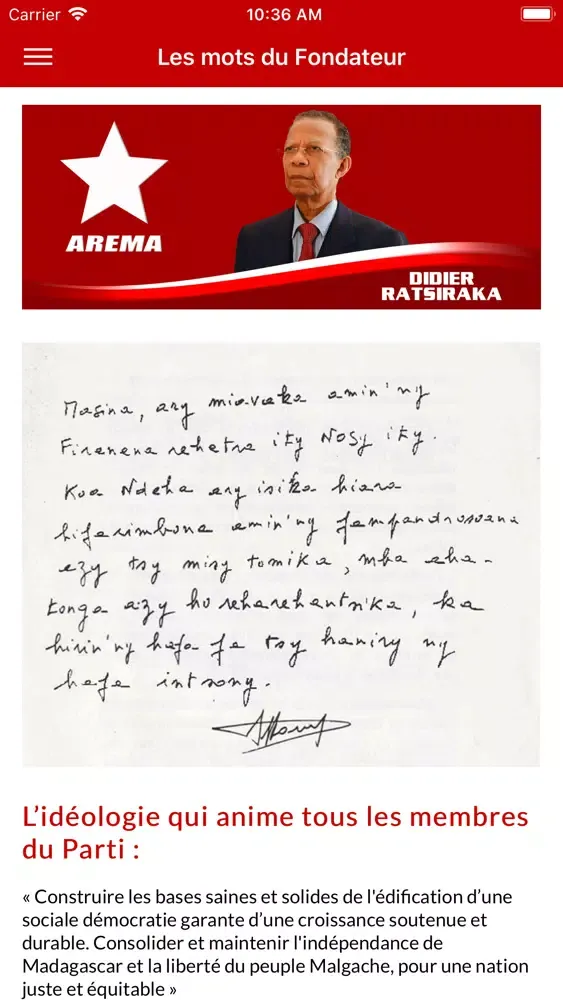 Carrier 10:36 AM
Les mots du Fondateur
AREMA
DIDIER
RATSIRAKA
Masina, ary miavaka amin'ny
Firenena rehetra ity Nosy ity.
Koa Ndeha ary isika hiara
hifarimbona amin'ny fampandrosoana
azy tsy misy tomika, mba aha-
tonga azy ho reharehantsika, ka
hirin'ny hafa fa tsy haniry ny
hafa intsony.
L'idéologie qui anime tous les membres
du Parti :
« Construire les bases saines et solides de l'édification d'une
sociale démocratie garante d'une croissance soutenue et
durable. Consolider et maintenir l'indépendance de
Madagascar et la liberté du peuple Malgache, pour une nation
juste et équitable »